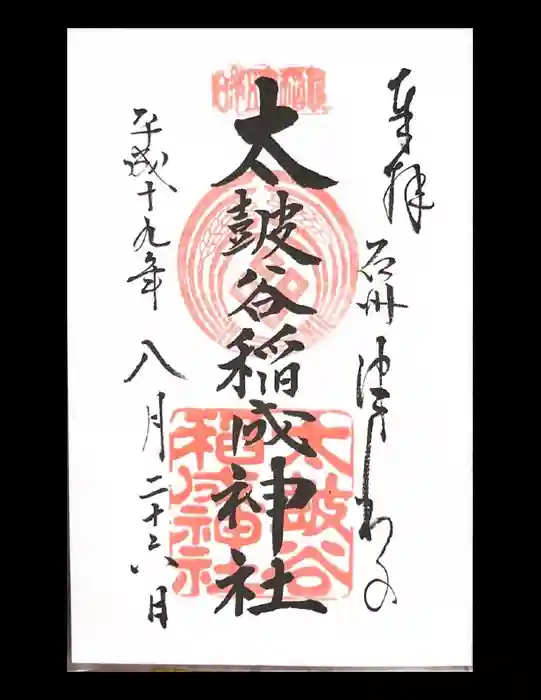 奉拝
石州 津和野
太皷谷稲成神社
平成十九年八月二十六日
太皷谷
稲成神社